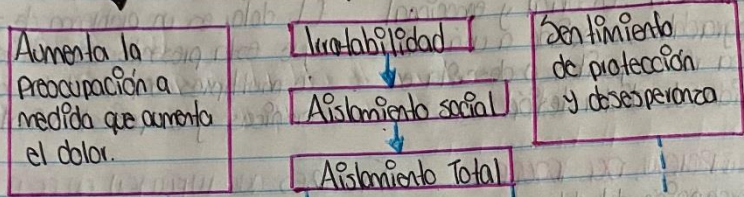 Aumenta la
preocupación a
medida que aumenta
el dolor.
Irratabilidad
Aislamiento social
Aislamiento Total
Sentimiento
de protección
y desesperanza